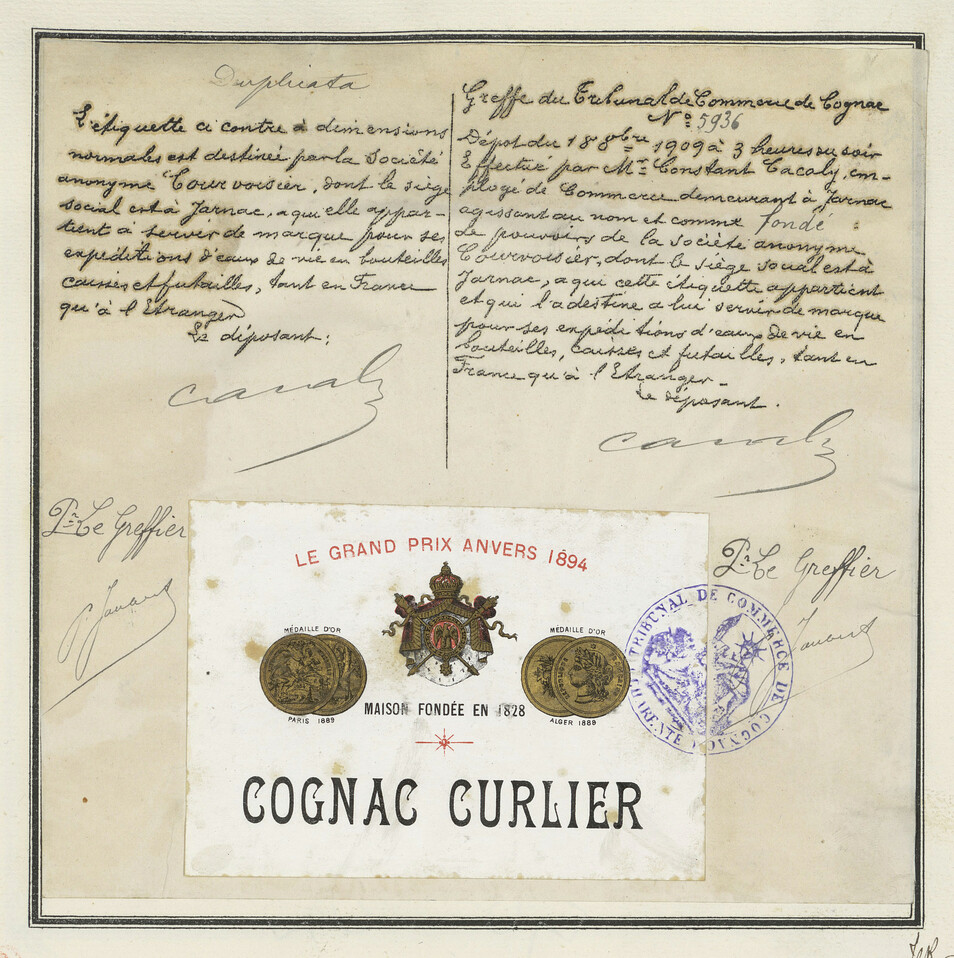 Duplicata
L'étiquette ci contre à dimensions
normales est destinée par la Société
anonyme Courvoisier, dont le siège
social est à Jarnac, a qui elle appar-
tient à servir de marque pour ses
expéditions d'eaux de vie en bouteilles
caisses et futailles, tant en France
qu'à l'Etranger
Le déposant:
Greffe du Tribunal de Commerce de Cognac
No 5936
Dépot du 18 8bre 1909 à 3 heures du soir
Effectué par Mr Constant Cacaly, em-
ployé de Commerce demeurant à Jarnac
agissant au nom et comme fondé
de pouvoirs de la société anonyme
Courvoisier, dont le siège social est à
Jarnac, a qui cette étiquette appartient
et qui l'a destine a lui servir de marque
pour ses expéditions d'eaux de vie en
bouteilles, caisses et futailles, tant en
France qu'à l'Etranger-
Le déposant.
Pr Le Greffier
Pr Le Greffier
LE GRAND PRIX ANVERS 1894
MÉDAILLE D'OR
MÉDAILLE D'OR
PARIS 1889
MAISON FONDÉE EN 1828
ALGER 1889
COGNAC CURLIER
TRIBUNAL DE COMMERCE DE COGNAC